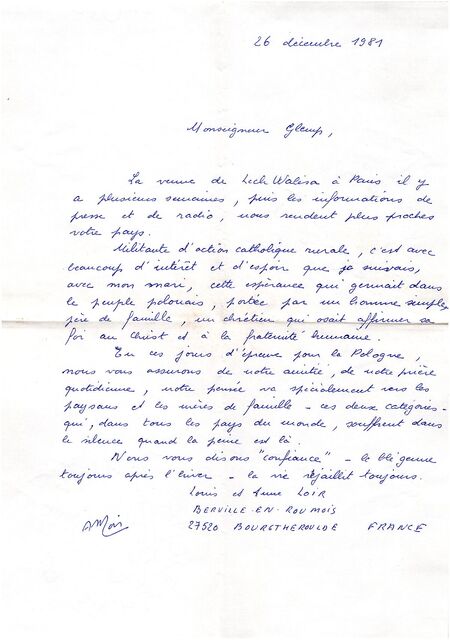 26 décembre 1981
Monseigneur Glemp,
La venue de Lech Walesa à Paris il y
a plusieurs semaines, puis les informations de
presse et de radio, nous rendent plus proches
votre pays.
Militante d'action catholique rurale, c'est avec
beaucoup d'intérêt et d'espoir que je suivais,
avec mon mari, cette espérance qui germait dans
le peuple polonais, portée par un homme simple,
père de famille, un chrétien qui osait affirmer sa
foi au Christ et à la fraternité humaine.
En ces jours d'épreuve pour la Pologne,
nous vous assurons de notre amitié, de notre prière
quotidienne, notre pensée va spécialement vers les
paysans et les mères de famille - ces deux catégories -
qui, dans tous les pays du monde, souffrent dans
le silence quand la peine est là.
Nous vous disons "confiance" - le blé germe
toujours après l'hiver - la vie rejaillit toujours.
Louis et Anne LOIR
BERVILLE-EN-ROUMOIS
27520 BOURGTHEROULDE FRANCE